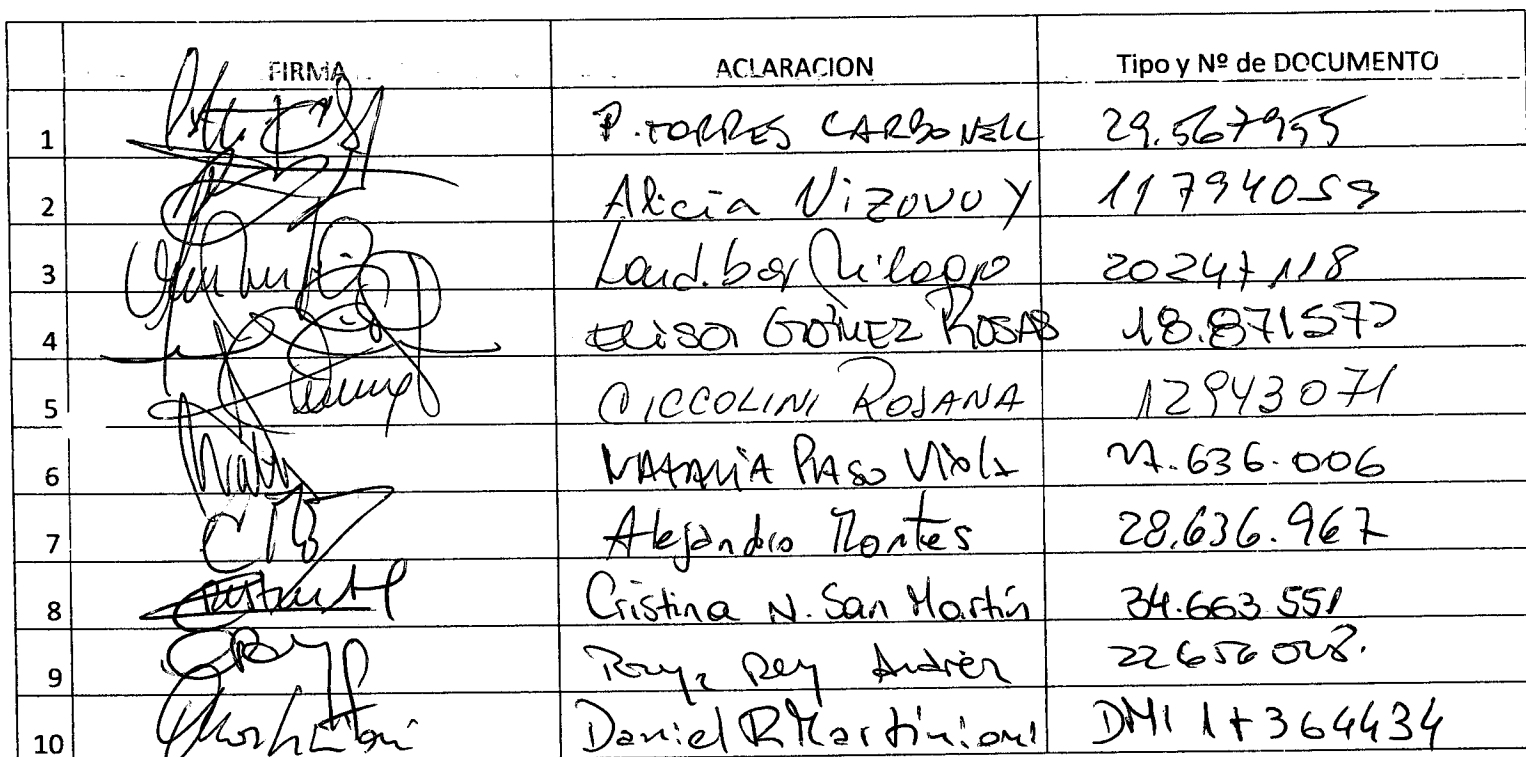 FIRMA ACLARACION Tipo y Nº de DOCUMENTO
1 P. TORRES CARBONELL 29.567955
2 Alicia Vizovoy 11794059
3 20247118
4 Elisa GÓMEZ ROSAS 18.871573
5 CICCOLINI ROSANA 12943071
6 NATALIA Viola 27.636.006
7 Alejandro Montes 28.636.967
8 Cristina N. San Martín 34.663.551
9 Rey Andrés
10 Daniel R Martinioni DNI 17364434